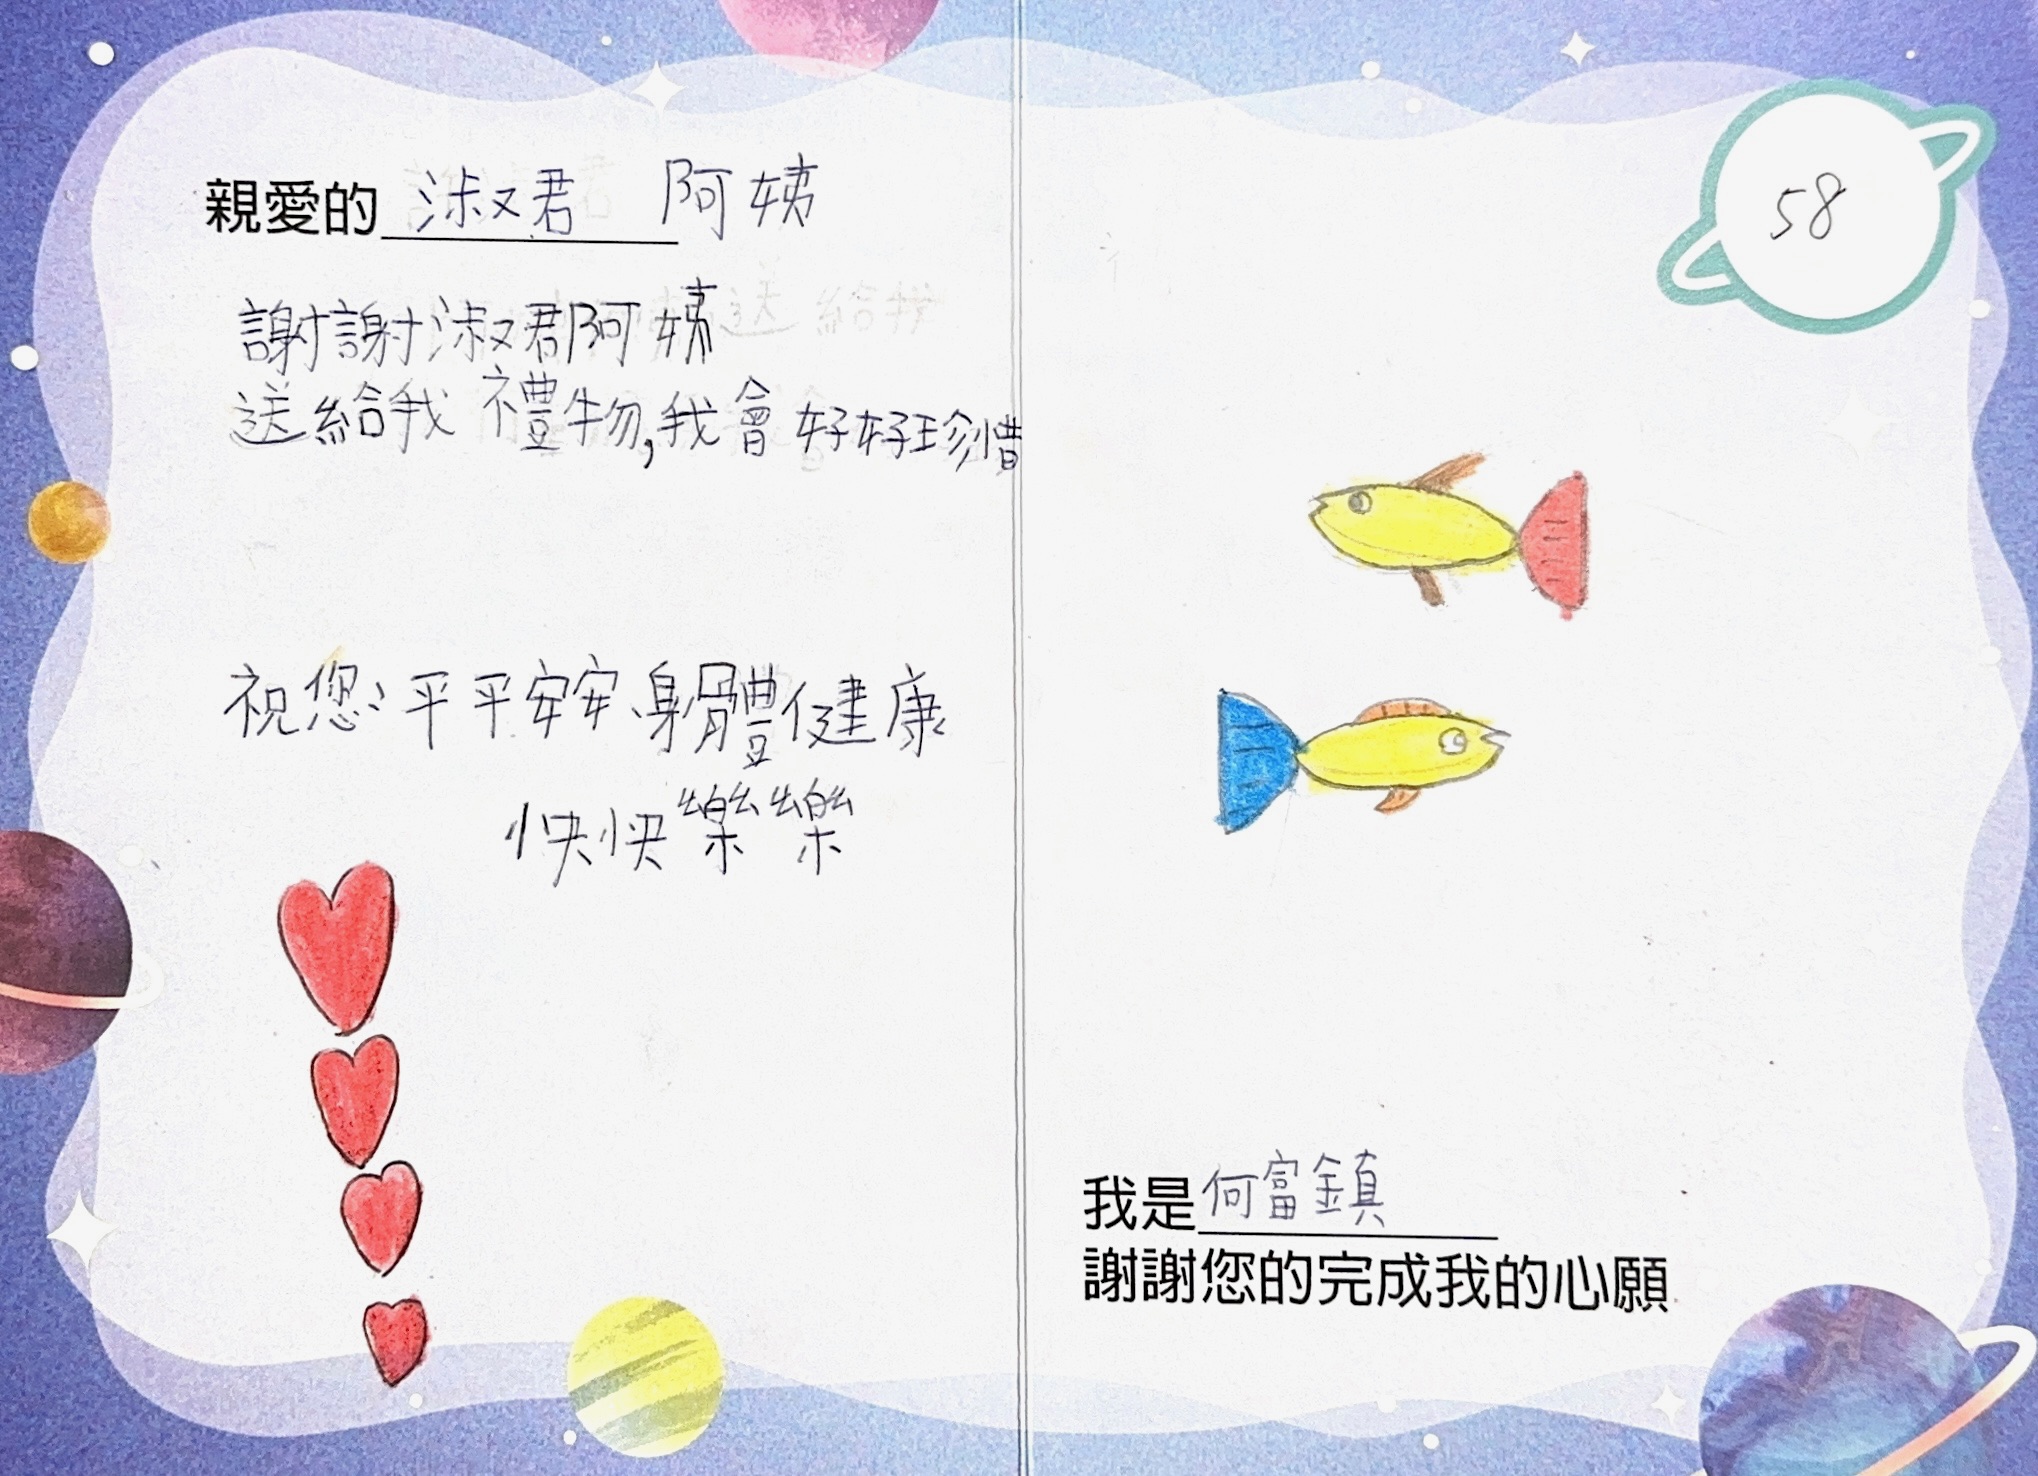 親愛的 淑君 阿姨
謝謝淑君阿姨
送給我禮物,我會好好珍惜
祝您:平平安安身體健康
快快樂樂
58
我是何富鎮
謝謝您的完成我的心願